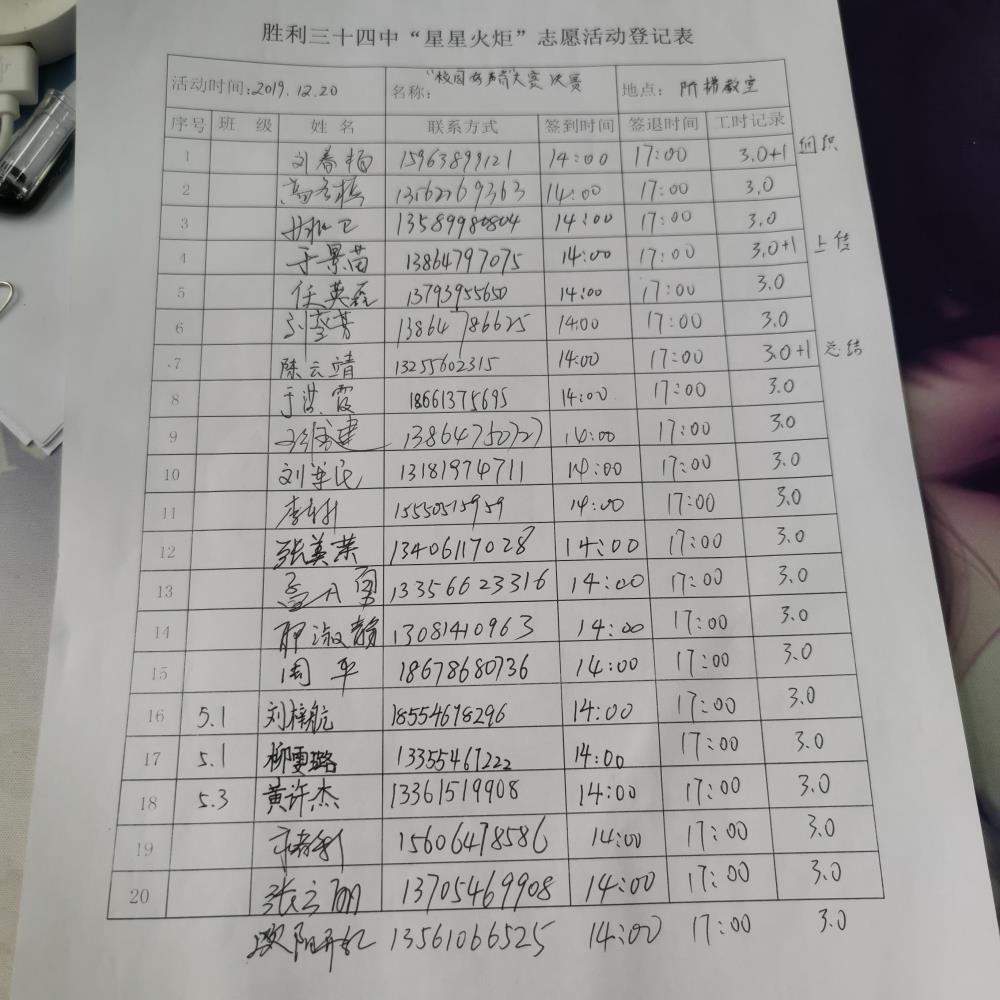 胜利三十四中“星星火炬”志愿活动登记表
活动时间:2019.12.20 名称: "校园好声音"大赛 决赛 地点: 阶梯教室
序号 班 级 姓 名 联系方式 签到时间 签退时间 工时记录
1 刘春梅 15963899121 14:00 17:00 3.0+1 组织
2 13562269363 14:00 17:00 3.0
3 13589980804 14:00 17:00 3.0
4 于景苗 13864797075 14:00 17:00 3.0+1 上传
5 任英磊 13793955650 14:00 17:00 3.0
6 13864786625 14:00 17:00 3.0
7 陈云靖 13255602315 14:00 17:00 3.0+1 总结
8 于洪霞 18661375695 14:00 17:00 3.0
9 14:00 17:00 3.0
10 刘军民 13181974711 14:00 17:00 3.0
11 15550515959 14:00 17:00 3.0
12 张美荣 13406117028 14:00 17:00 3.0
13 13356623316 14:00 17:00 3.0
14 淑 13081410963 14:00 17:00 3.0
15 周平 18678680736 14:00 17:00 3.0
16 5.1 刘梓航 18554678296 14:00 17:00 3.0
17 5.1 柳雯璐 13355467222 14:00 17:00 3.0
18 5.3 黄许杰 13361519908 14:00 17:00 3.0
19 15606478586 14:00 17:00 3.0
20 张云丽 13705469908 14:00 17:00 3.0
欧阳开红 13561066525 14:00 17:00 3.0